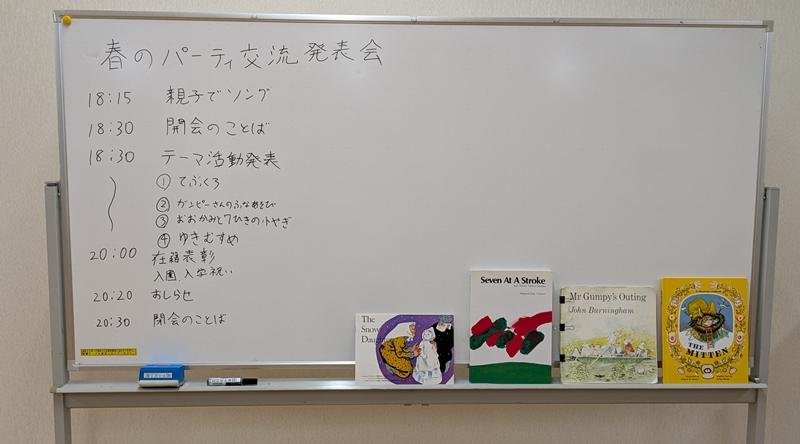 春のパーティ交流発表会
18:15 親子でソング
18:30 開会のことば
18:30 テーマ活動発表
① てぶくろ
② ガンピーさんのふなあそび
③ おおかみと7ひきの小やぎ
④ ゆきむすめ
20:00 在籍表彰
入園、入学祝い
20:20 おしらせ
20:30 閉会のことば
The
Snow
Daughter
Seven At A Stroke
Mr Gumpy's Outing
John Burningham
THE
MITTEN